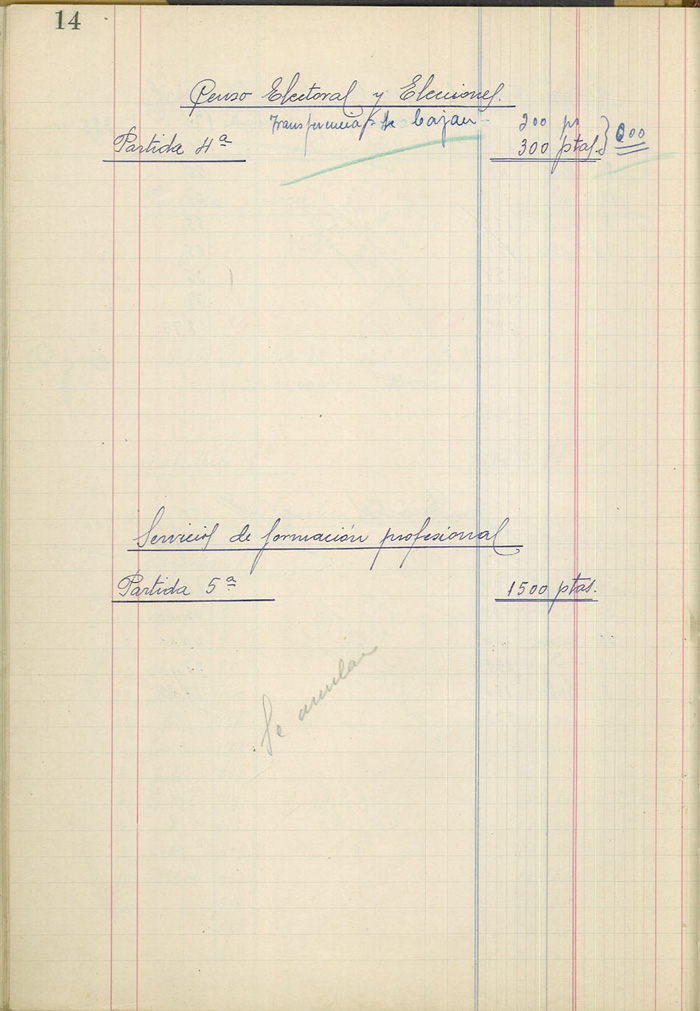 14
Censo Electoral y Elecciones.
Transferencias Se bajan 200 ps
Partida 4ª 300 ptas.
Servicios de formación profesional
Partida 5ª 1500 ptas.
Se anulan